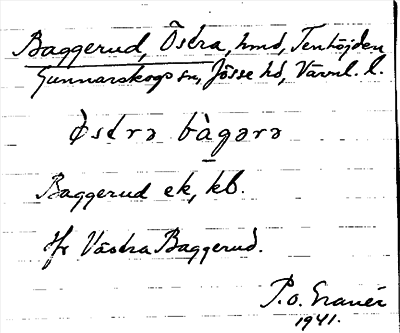 Baggerud, Östra, hmd, Tenhöjden
Gunnarskogs sn, Jösse hd, Värml. l.
östrə bàgərə
Baggerud ek, kb.
Jfr Västra Baggerud.
P.O. Granér
1941.